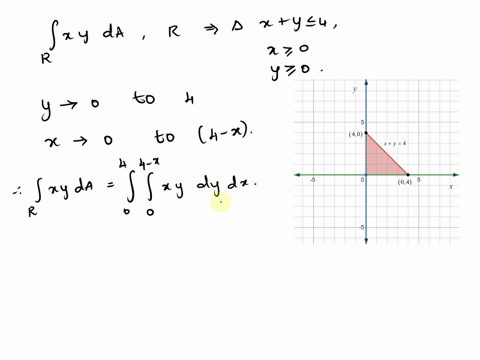 ∫_R xy dA , R ⇒ Δ x + y ≤ 4 ,
x ≥ 0
y ≥ 0 .
y → 0 to 4
x → 0 to (4-x).
∴ ∫_R xy dA = ∫_0^4 ∫_0^{4-x} xy dy dx.
y
5
(4,0)
x + y = 4
-5
0
(0,4)
5
x
-5